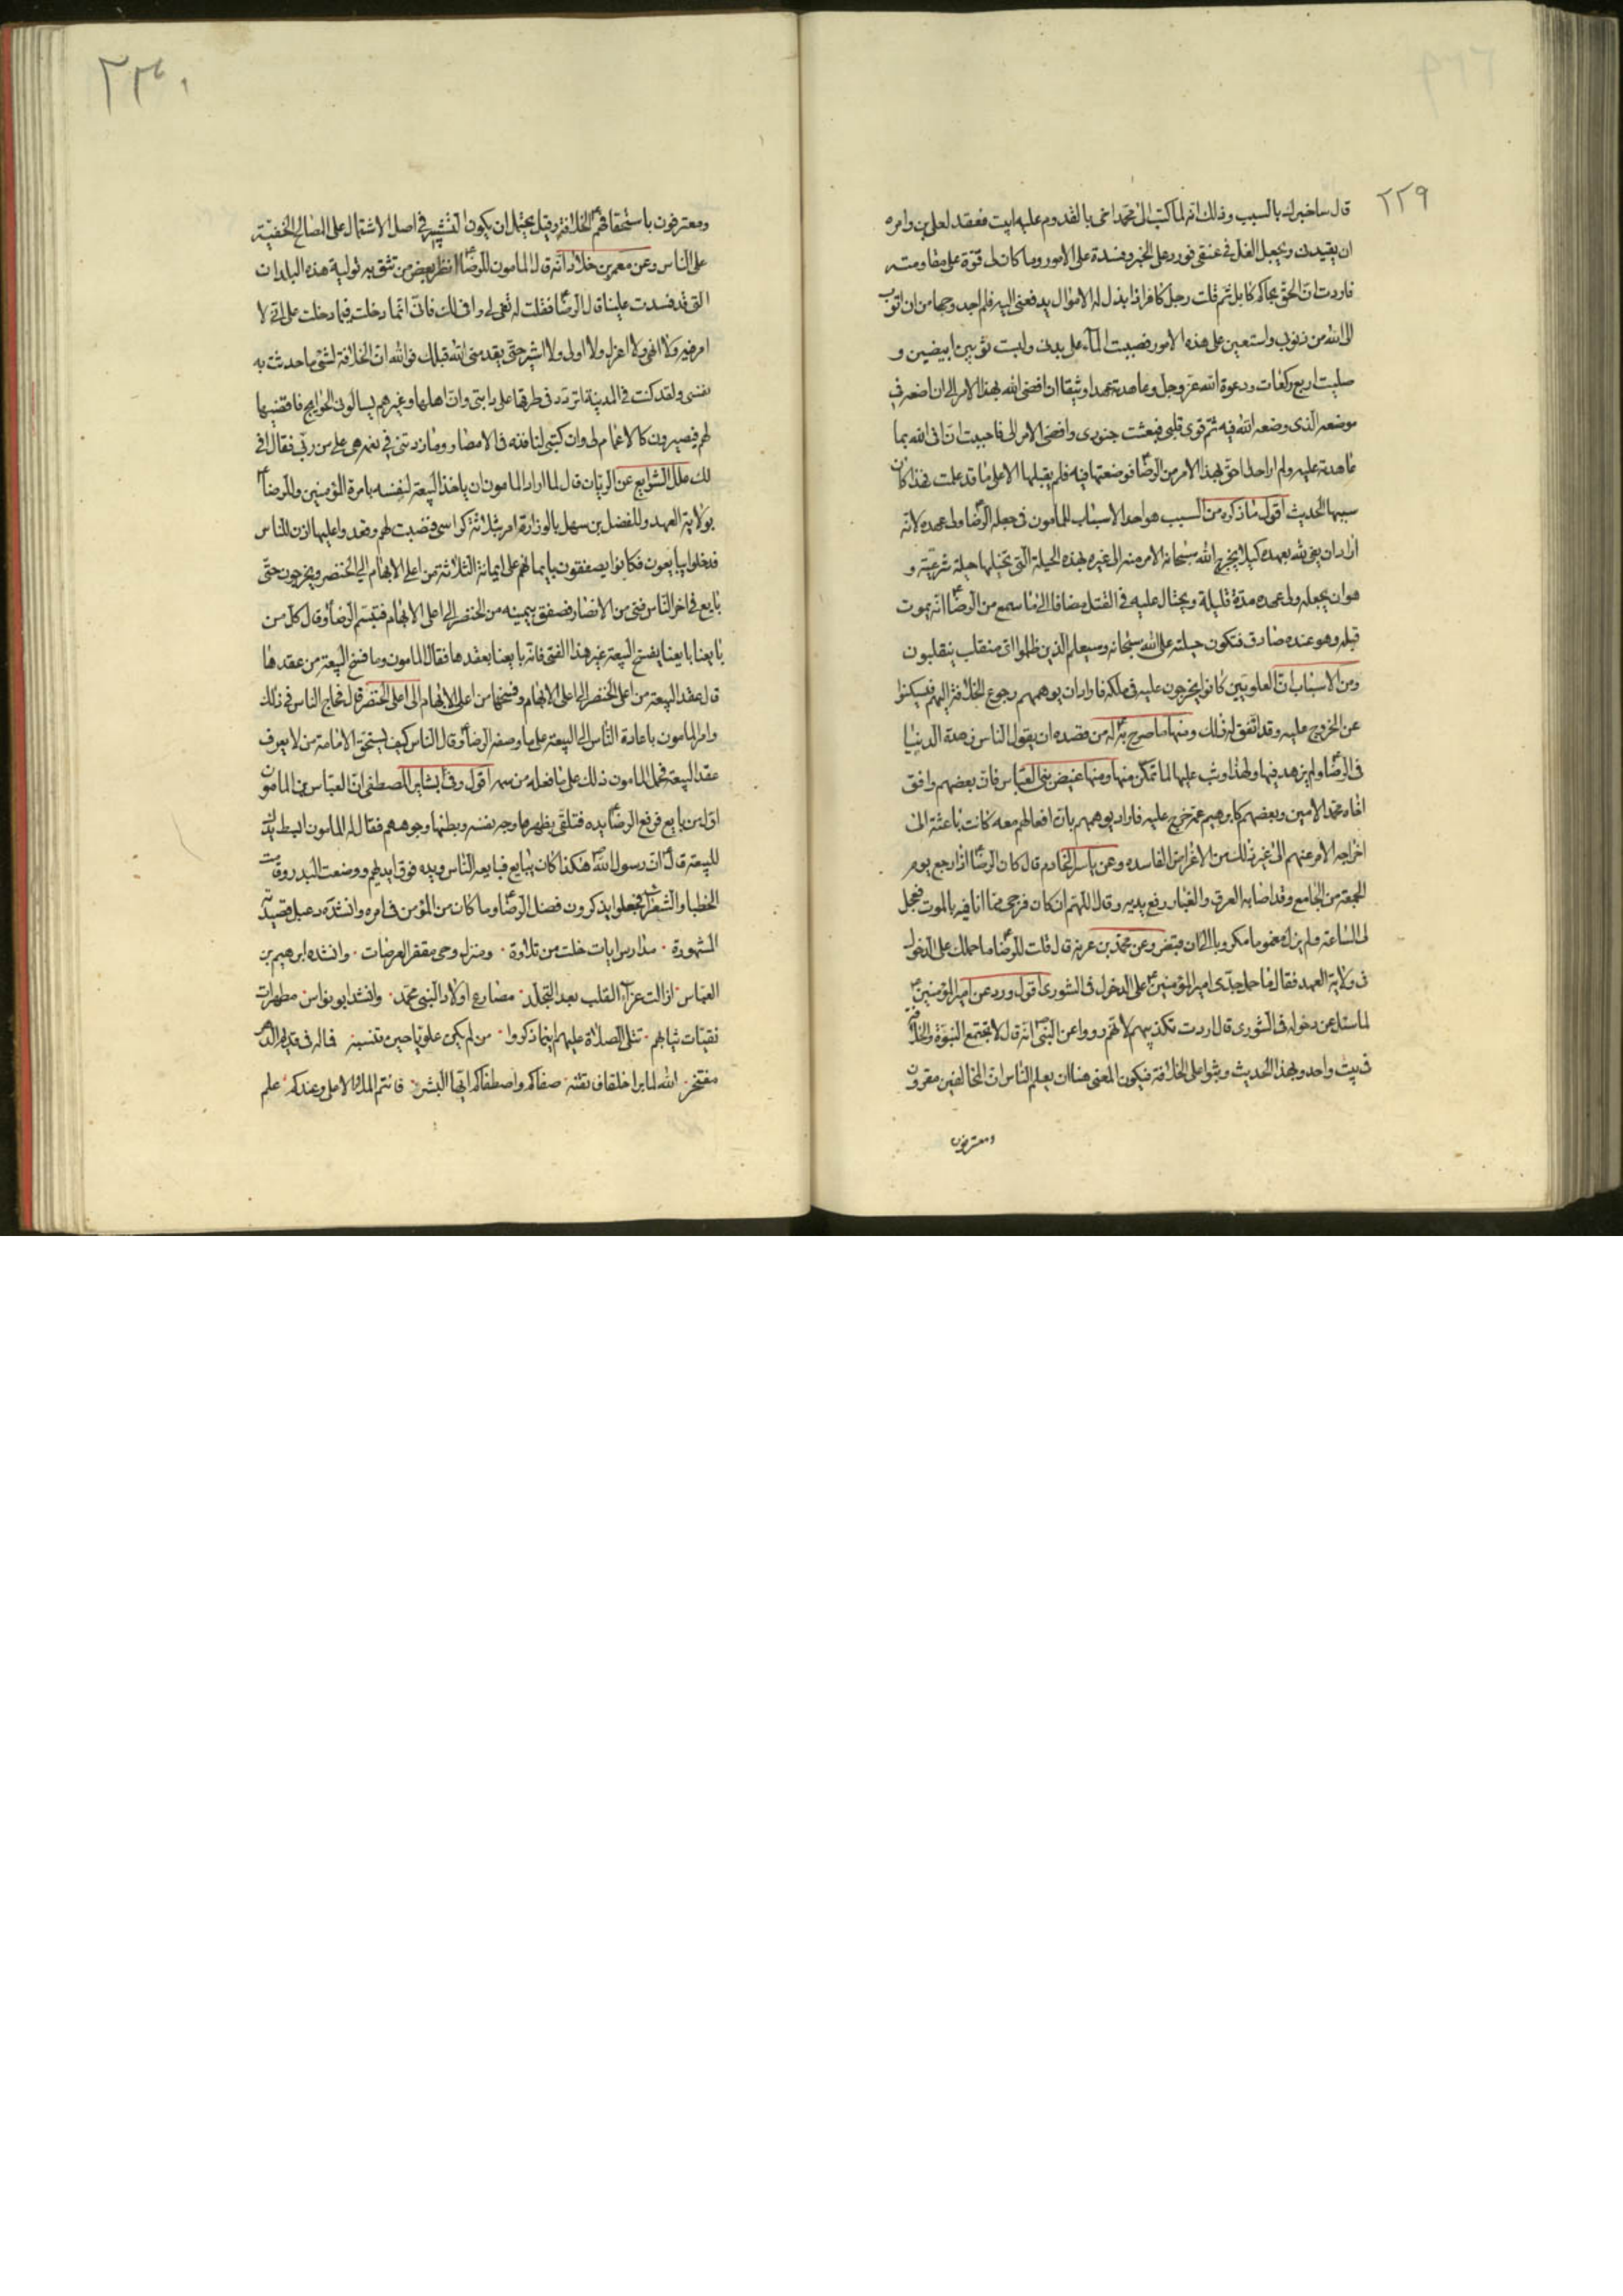 ٢٢٩
قال ساخبرك بالسبب وذلك انه لما كتب الىّ محمد اخى بالقدوم عليه ابيت فعقد لعلى بن وامره
ان يقيدنى ويجعل الغل فى عنقى فورد على الخبر وفسدة على الامور وما كان لى قوة على مقاومته
فاردت ان الحق بملك كابل ثم قلت رجل كافر اذا بذل له الاموال يدفعنى اليه فلم اجد وجها من ان اتوب
الى الله من ذنوبى واستعين على هذه الامور فصببت الماء على بدنى ولبست ثوبين ابيضين و
صليت اربع ركعات ودعوة الله عز وجل وعاهدته عهدا وثيقا ان افضى الله بهذا الامر الى ان اضعه فى
موضعه الذى وضعه الله فيه ثم قوى قلبى فبعثت جنودى وافضى الامر الى فاحببت ان افى الله بما
عاهدته عليه ولم ار احدا احق بهذا الامر من الرضا فوضعتها فيه فلم يقبلها الا على ما قد علمت فهذا كان
سببها الحديث اقول ما ذكره من السبب هو احد الاسباب للمامون فى جعله الرضا ولى عهده لانه
اراد ان يفى لله بعهده كيلا يخرج الله سبحانه الامر منه الى غيره بهذه الحيلة التى تخيلها حيلة شرعيته و
هو ان يجعله ولى عهده مدة قليلة ويحتال عليه فى القتل مضافا الى ما سمع من الرضا انه يموت
قبله وهو عنده صادق فتكون حيلته على الله سبحانه وسيعلم الذين ظلموا اى منقلب ينقلبون
ومن الاسباب ان العلويين كانوا يخرجون عليه فى ملكه فاراد ان يوهمهم رجوع الخلافة اليهم فيسكنوا
عن الخروج عليه وقد اتفق له ذلك ومنها ما صرح به له من قصده ان يقول الناس زهدة الدينا
فى الرضا ولم يزهد فيها ولهذا وثب عليها لما تمكن منها ومنها غيض بنى العباس فان بعضهم وافق
اخاه محمد الامين وبعضهم كابرهيم عمه خرج عليه فاراد يوهمهم بان افعالهم معه كانت باعثة الى
اخراجه الامر عنهم الى غير ذلك من الاغراض الفاسده وعن ياسر الخادم قال كان الرضا اذا رجع يوم
الجمعة من الجامع وقد اصابه العرق والغبار رفع يديه وقال اللهم ان كان فرجى مما انا فيه بالموت فعجل
لى الساعة ولم يزل مغموما مكروبا الى ان قبض وعن محمد بن عرفة قال قلت للرضا ما حملك على الدخول
فى ولاية العهد فقال ما حمل جدى امير المؤمنين على الدخول فى الشورى اقول ورد عن امير المؤمنين
لما سئل عن دخوله فى الشورى قال اردت تكذيبهم لانهم رووا عن النبى انه قال لا تجتمع النبوة والخلافة
فى بيت واحد وبهذا الحديث وثبوا على الخلافة فيكون المعنى هنا ان يعلم الناس ان المخالفين مقرون
ومعترفون
٢٣٠
ومعترفون باستحقاقهم الخلافة وقيل يحتمل ان يكون التشبيه فى اصل الاشتمال على المصالح الخفية
على الناس وعن معمر بن خلاد انه قال المامون للرضا انظر بعض من تثق به توليه هذه البلدان
التى قد فسدت علينا قال الرضا فقلت له تفى لى وافى لك فانى انما دخلت فيما دخلت على انى لا
امر فيه ولا انهى ولا اعزل ولا اولى ولا اشير حتى يقدمنى الله قبلك فوالله ان الخلافة لشئ ما حدثت به
نفسى ولقد كنت فى المدينة اتردد فى طرقها على دابتى وان اهلها وغيرهم يسالونى الحوايج فاقضيها
لهم فيصيرون كالاعمام لى وان كتبى لنافذه فى الامصار وما زدتنى فى نعمه هى على من ربى فقال افى
لك علل الشرايع عن الريان قال لما اراد المامون ان ياخذ البيعة لنفسه بامرة المؤمنين وللرضا
بولاية العهد وللفضل بن سهل بالوزارة امر بثلاثة كراسى فنصبت لهم وقعدوا عليها اذن للناس
فدخلوا يبايعون فكانوا يصفقون بايمانهم على ايمانه الثلاثة من اعلى الابهام الى الخنصر ويخرجون حتى
بايع فى اخر الناس فتى من الانصار فصفق بيمينه من الخنصر الى اعلى الابهام فتبسم الرضا وقال كل من
بايعنا بايعنا بفسخ البيعة غير هذا الفتى فانه بايعنا بعقدها فقال المامون وما فسخ البيعة من عقدها
قال عقد البيعة من اعلى الخنصر الى اعلى الابهام وفسخها من اعلى الابهام الى اعلى الخنصر قال فماج الناس فى ذلك
وامر المامون باعادة الناس الى البيعة على ما وصفه الرضا وقال الناس كيف يستحق الامامة من لا يعرف
عقد البيعة فحمل المامون ذلك على ما فعله من سمه اقول وفى بشاير المصطفى ان العباس بن المامون
اول من بايع فرفع الرضا يده فتلقى بظهرها وجه نفسه وببطنها وجوههم فقال له المامون ابسط يدك
للبيعة قال ان رسول الله هكذا كان يبايع فبايعه الناس ويده فوق ايديهم ووضعت البدر وقامت
الخطبا والشعراء فجعلوا يذكرون فضل الرضا وما كان من المؤمن فى امره وانشده دعبل قصيدته
المشهورة ٠ مدارس ايات خلت من تلاوة ٠ ومنزل وحى مقفر العرصات ٠ وانشده ابرهيم بن
العباس ٠ ازالت عزآء القلب بعد التجلد ٠ مصارع اولاد النبى محمد ٠ وانشد ابو نواس ٠ مطهرات
نقيات ثيابهم ٠ تتلى الصلاة عليهم اينما ذكروا ٠ من لم يكن علويا حين تنسبه فماله فى قديم الدهر
مفتخر ٠ الله لما برا خلقا فاتقنه ٠ صفاكم واصطفاكم ايها البشر ٠ فانتم الملاء الاعلى وعندكم ٠ علم